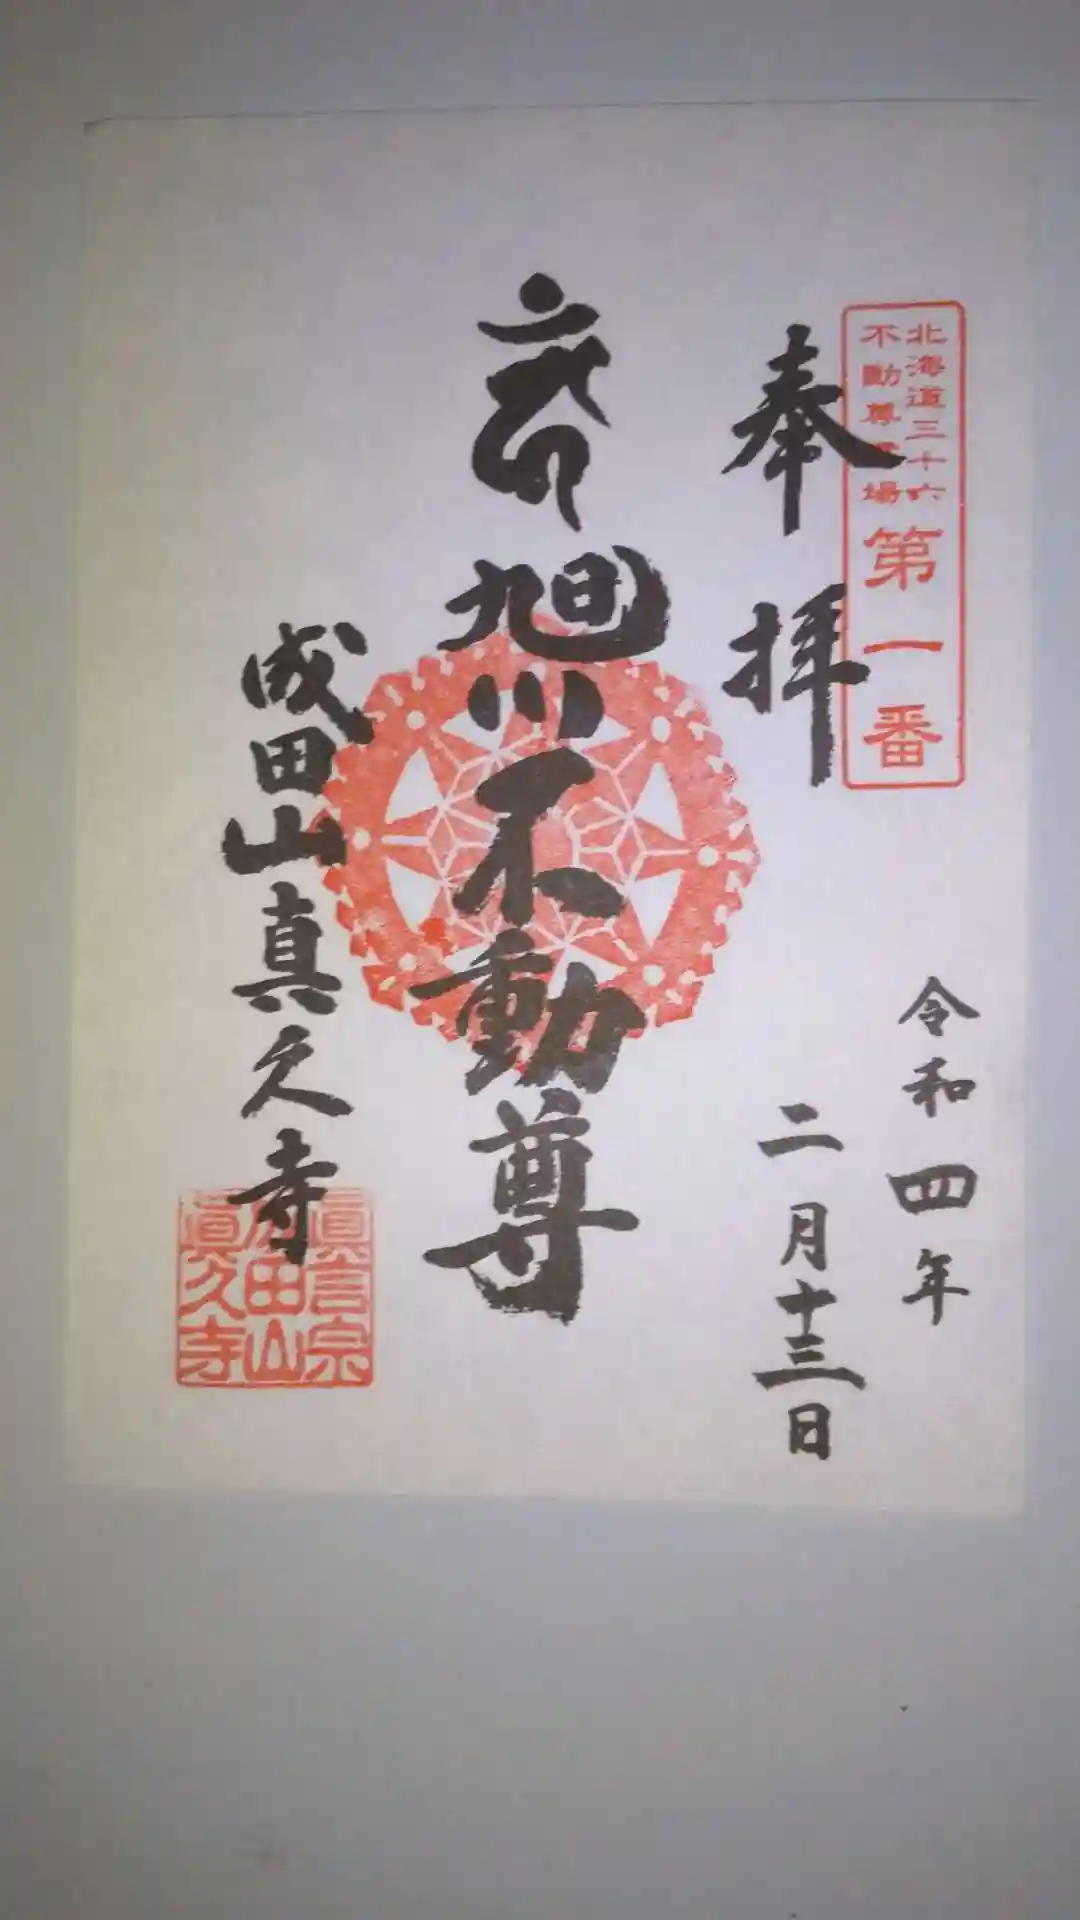 北海道三十六
不動尊霊場
第一番
奉拝
令和四年
二月十三日
旭川不動尊
成田山真久寺
真言宗
成田山
真久寺